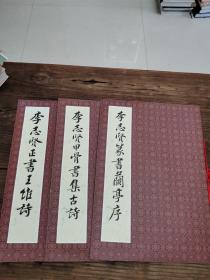 李志贤正书王维诗
李志贤甲骨书集古诗
李志贤篆书兰亭序